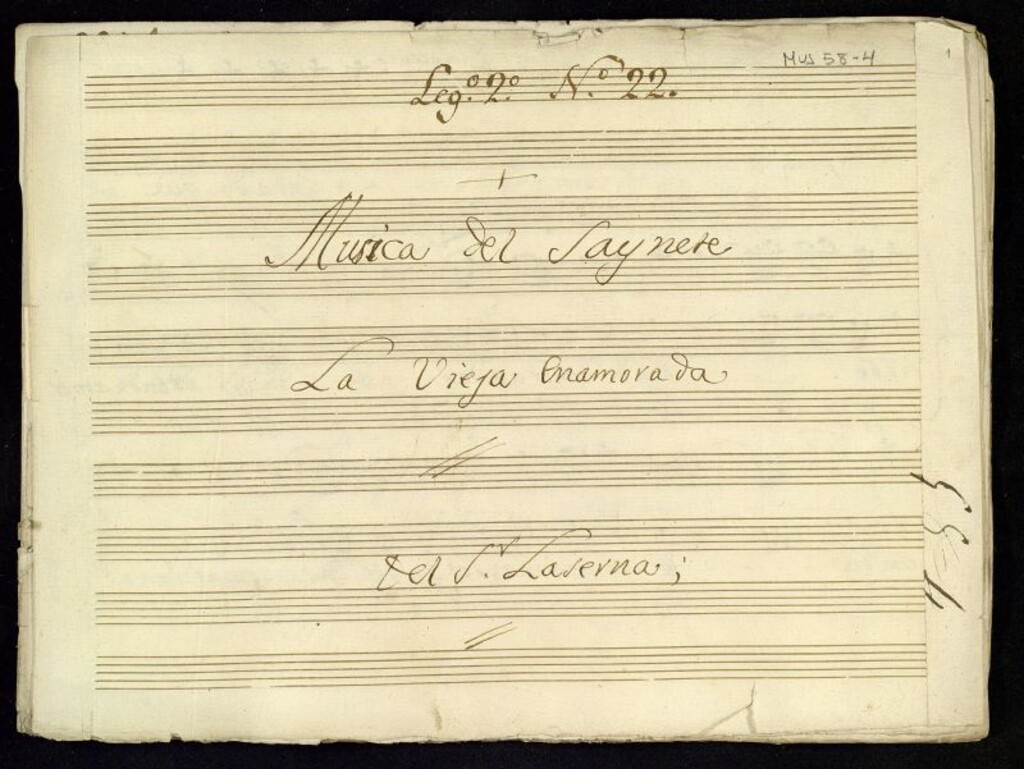 MUS 58-4
1
Leg.º 2.º N.º 22.
+
Musica del Saynete
La Vieja Enamorada
del S.r Laserna;